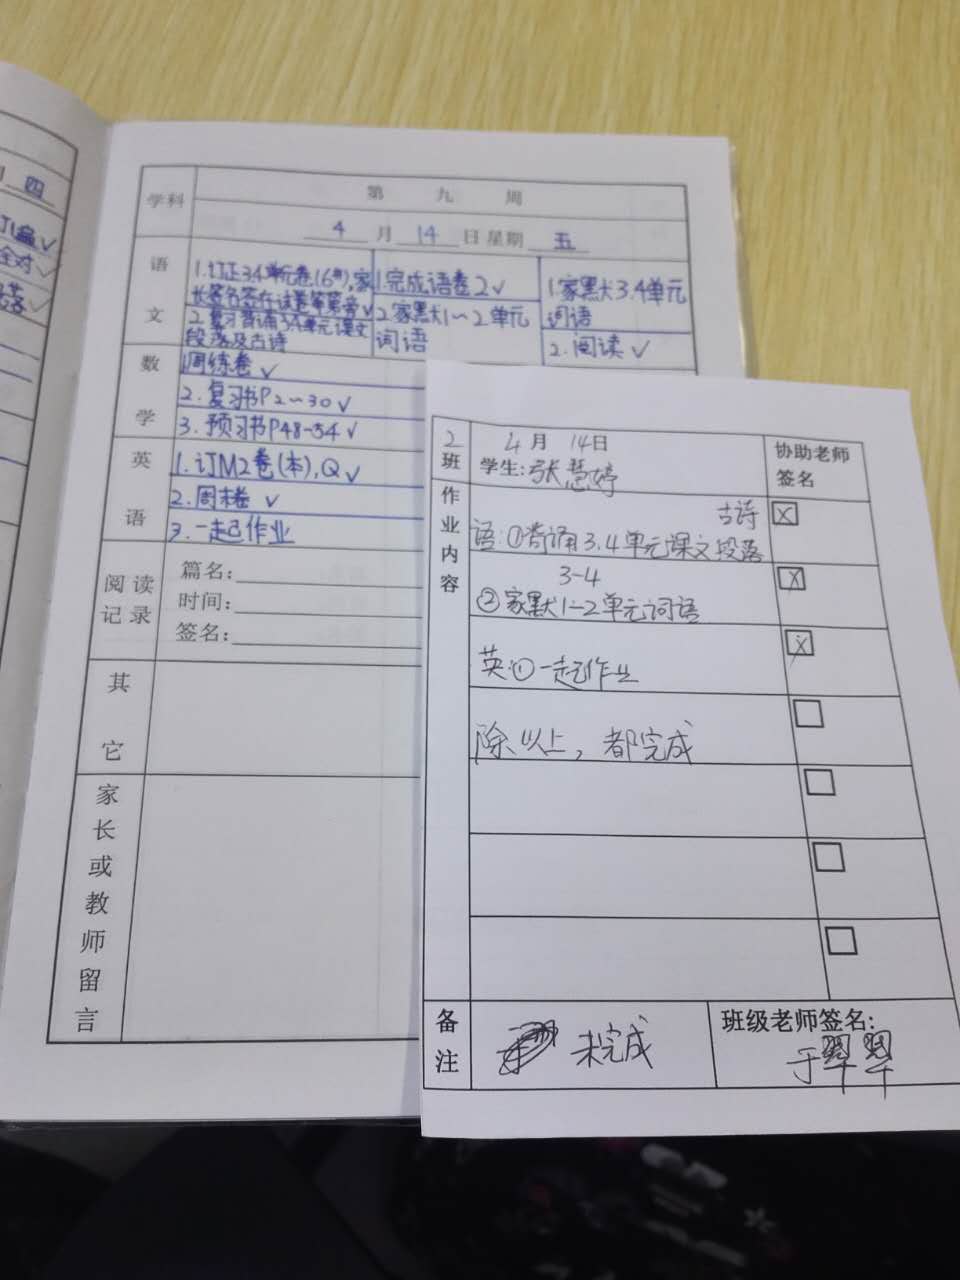 四
学科
第 九 周
4 月 14 日 星期 五
语文
1.订正3.4单元卷(6号),家
长签名签在试卷等第旁✓
2.复习背诵3.4单元课文
段落及古诗
1.完成语卷2✓
2.家默1~2单元
词语
1.家默3.4单元
词语
2.阅读✓
数学
1.周练卷✓
2.复习书P2~30✓
3.预习书P48-54✓
英语
1.订M2卷(本),Q✓
2.周末卷✓
3.一起作业
阅读记录
篇名:
时间:
签名:
其它
家长或教师留言
2班
4月 14日
学生:张慧婷
协助老师
签名
作业内容
古诗
语:①背诵3.4单元课文段落
X
3-4
②家默1-2单元词语
X
英:①一起作业
X
除以上,都完成
备注
未完成
班级老师签名:
于翠翠